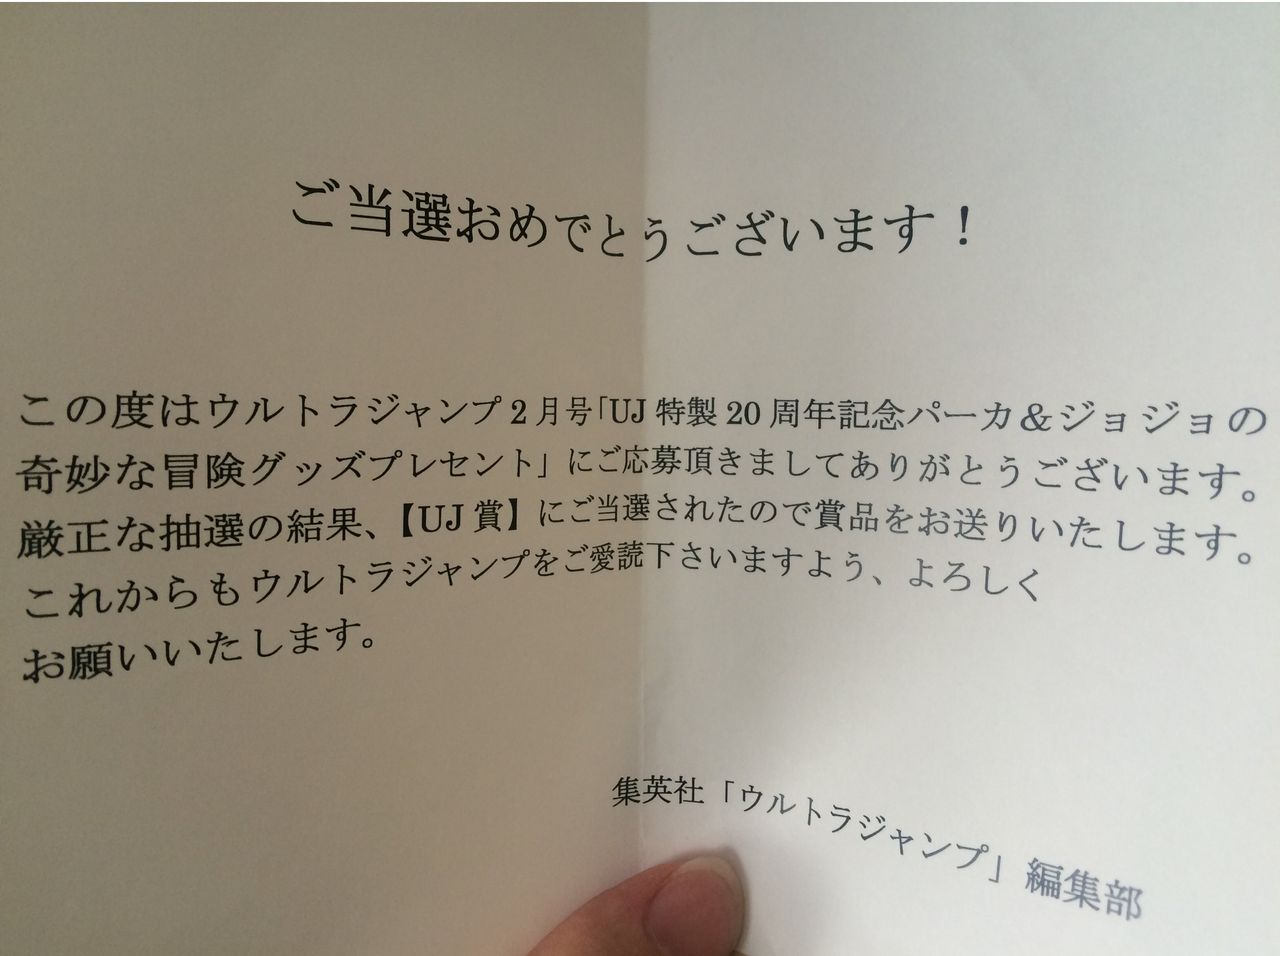 ご当選おめでとうございます！
この度はウルトラジャンプ2月号「UJ特製20周年記念パーカ＆ジョジョの
奇妙な冒険グッズプレゼント」にご応募頂きましてありがとうございます。
厳正な抽選の結果、【UJ賞】にご当選されたので賞品をお送りいたします。
これからもウルトラジャンプをご愛読下さいますよう、よろしく
お願いいたします。
集英社「ウルトラジャンプ」編集部